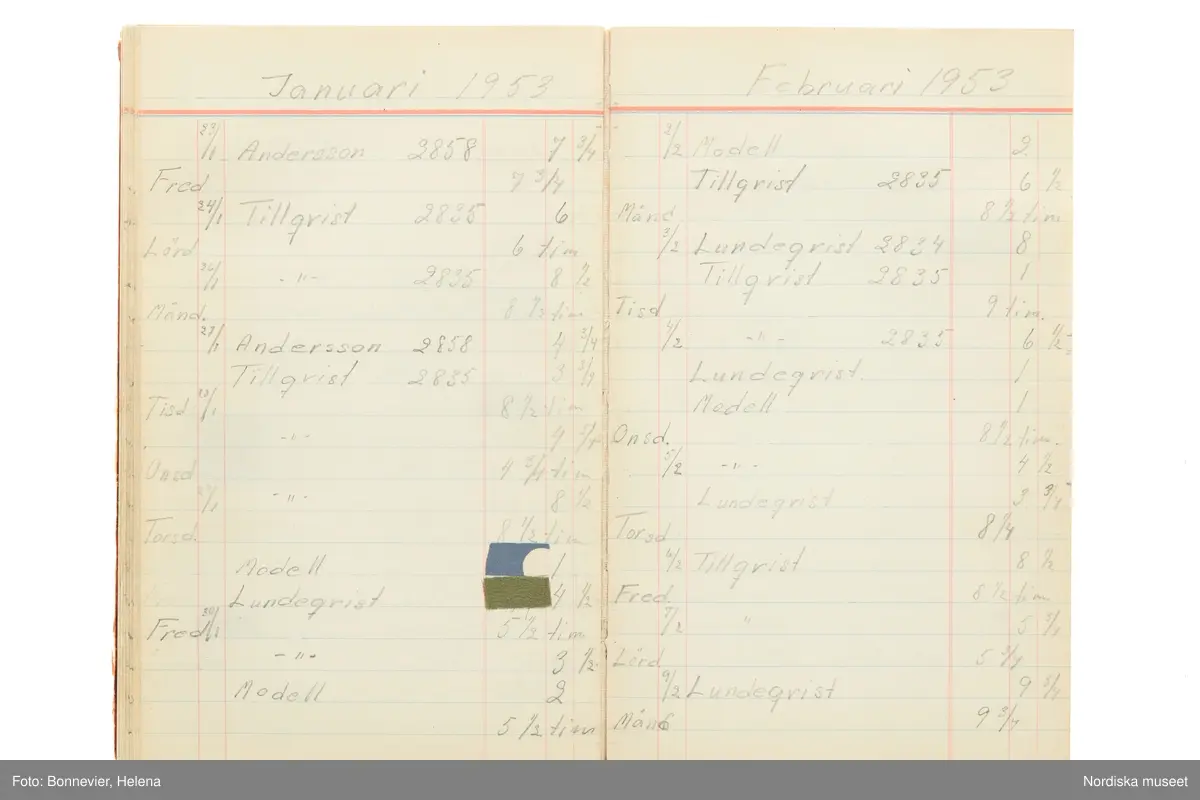 Januari 1953
23/1 Andersson 2858 7 3/4
Fred 7 3/4
24/1 Tillqrist 2835 6
Lörd 6 tim
26/1 -"- 2835 8 1/2
Månd. 8 1/2 tim
27/1 Andersson 2858 4 3/4
Tillqrist 2835 3 3/4
Tisd 8 1/2 tim
-"- 4 3/4
Onsd 4 3/4 tim
-"- 8 1/2
Torsd. 8 1/2 tim
Modell 1
Lundeqrist 4 1/2
Fred 30/1 5 1/2 tim
-"- 3 1/2
Modell 2
5 1/2 tim
Februari 1953
2/2 Modell 2
Tillqrist 2835 6 1/2
Månd 8 1/2 tim
3/2 Lundeqrist 2834 8
Tillqrist 2835 1
Tisd 9 tim.
4/2 -"- 2835 6 1/2
Lundeqrist 1
Modell 1
Onsd. 8 1/2 tim.
5/2 -"- 4 1/2
Lundeqrist 3 3/4
Torsd 8 1/4
6/2 Tillqrist 8 1/2
Fred. 8 1/2 tim
7/2 " 5 3/4
Lörd 5 3/4
9/2 Lundeqrist 9 3/4
Månd 9 3/4
Foto: Bonnevier, Helena
Nordiska museet